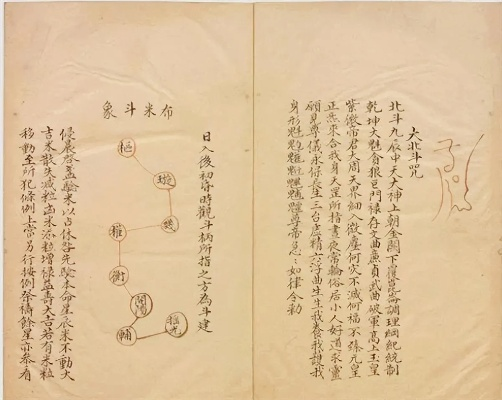 大北斗咒
北斗九辰中天大神上朝金闕下覆崑崙調理綱紀統制
乾坤大魁貪狼巨門祿存文曲廉貞武曲破軍高上玉皇
紫微帝君大周天界細入微塵何灾不滅何福不臻元皇
正炁來合我身天罡所指晝夜常輪俗居小人好道求靈
願見尊儀永保長生三台虛精六淳曲生生我養我護我
身形魁尊帝急〻如律令勑
日入後初昏時觀斗柄所指之方為斗建
布米斗象
樞
璇
璣
權
衡
開陽
搖光
輔
候晨啓盖驗米以占休咎先驗本命星辰米不動大
吉米散失減粒凶米添粒增祿益壽大吉若有米粒
移動至所犯條例上當另行按例祭禱餘星亦參看